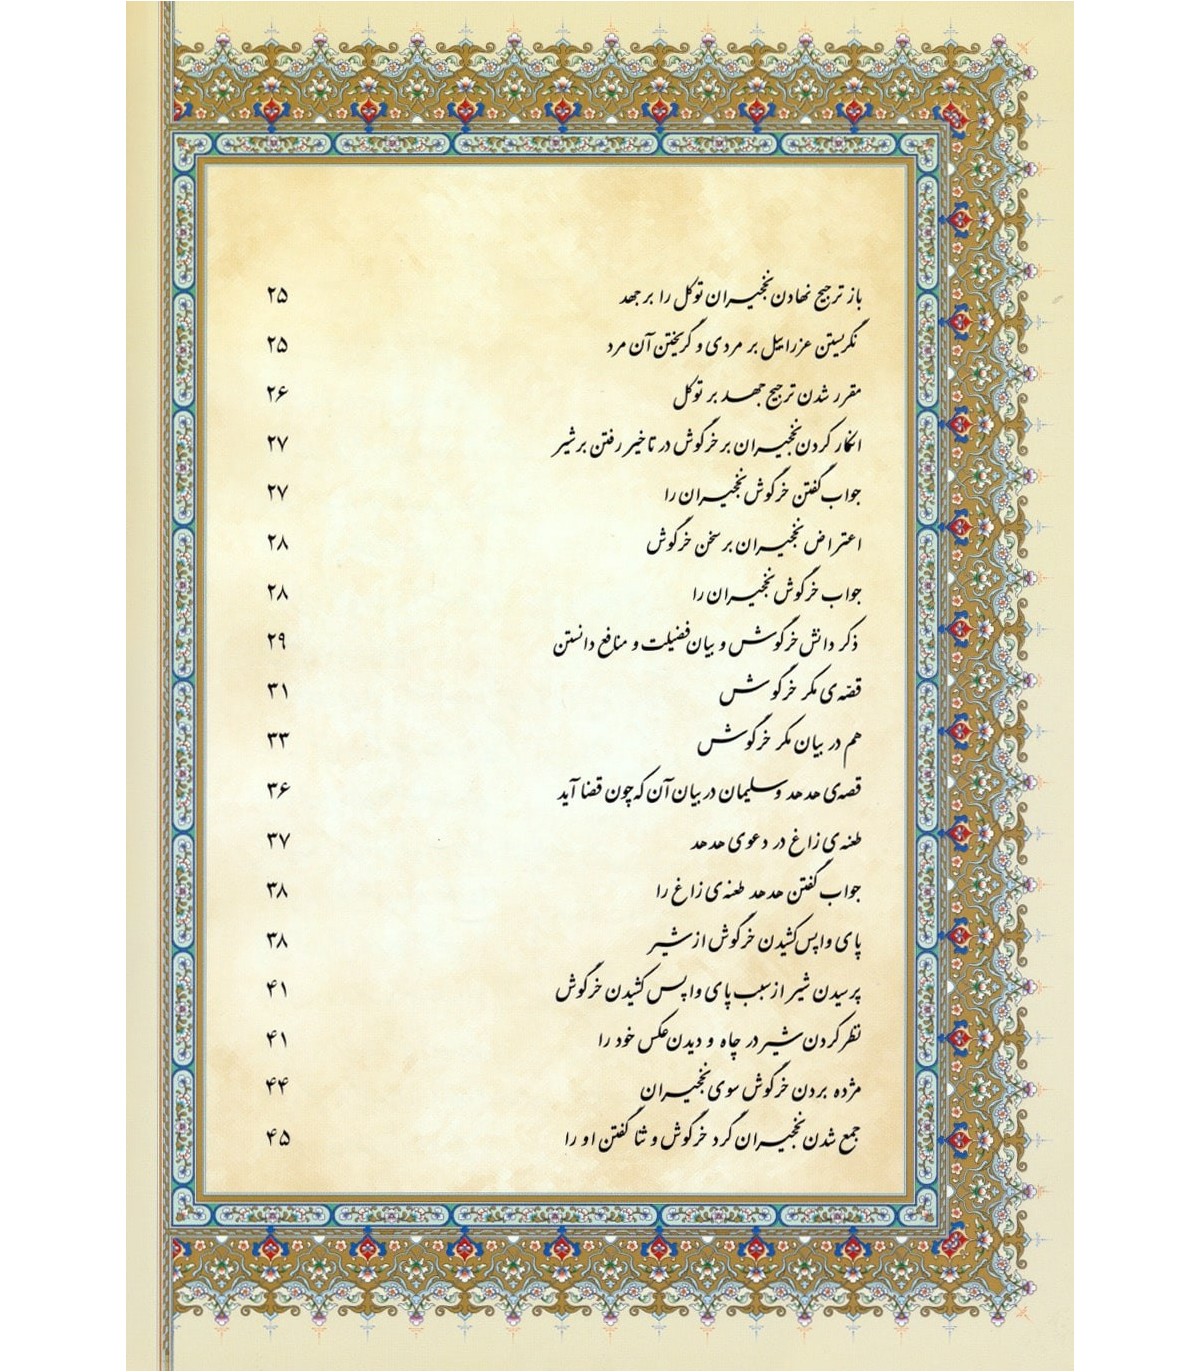 باز ترجیح نهادن نخجیران توکل را بر جهد ۲۵
نگریستن عزراییل بر مردی و گریختن آن مرد ۲۵
مقرر شدن ترجیح جهد بر توکل ۲۶
انکار کردن نخجیران بر خرگوش در تاخیر رفتن بر شیر ۲۷
جواب گفتن خرگوش نخجیران را ۲۷
اعتراض نخجیران بر سخن خرگوش ۲۸
جواب خرگوش نخجیران را ۲۸
ذکر دانش خرگوش و بیان فضیلت و منافع دانستن ۲۹
قصّه‌ی مکر خرگوش ۳۱
هم در بیان مکر خرگوش ۳۳
قصه‌ی هدهد و سلیمان در بیان آن که چون قضا آید ۳۶
طعنه‌ی زاغ در دعوی هدهد ۳۷
جواب گفتن هدهد طعنه‌ی زاغ را ۳۸
پای واپس کشیدن خرگوش از شیر ۳۸
پرسیدن شیر از سبب پای واپس کشیدن خرگوش ۴۱
نظر کردن شیر در چاه و دیدن عکس خود را ۴۱
مژده بردن خرگوش سوی نخجیران ۴۴
جمع شدن نخجیران گرد خرگوش و ثنا گفتن او را ۴۵